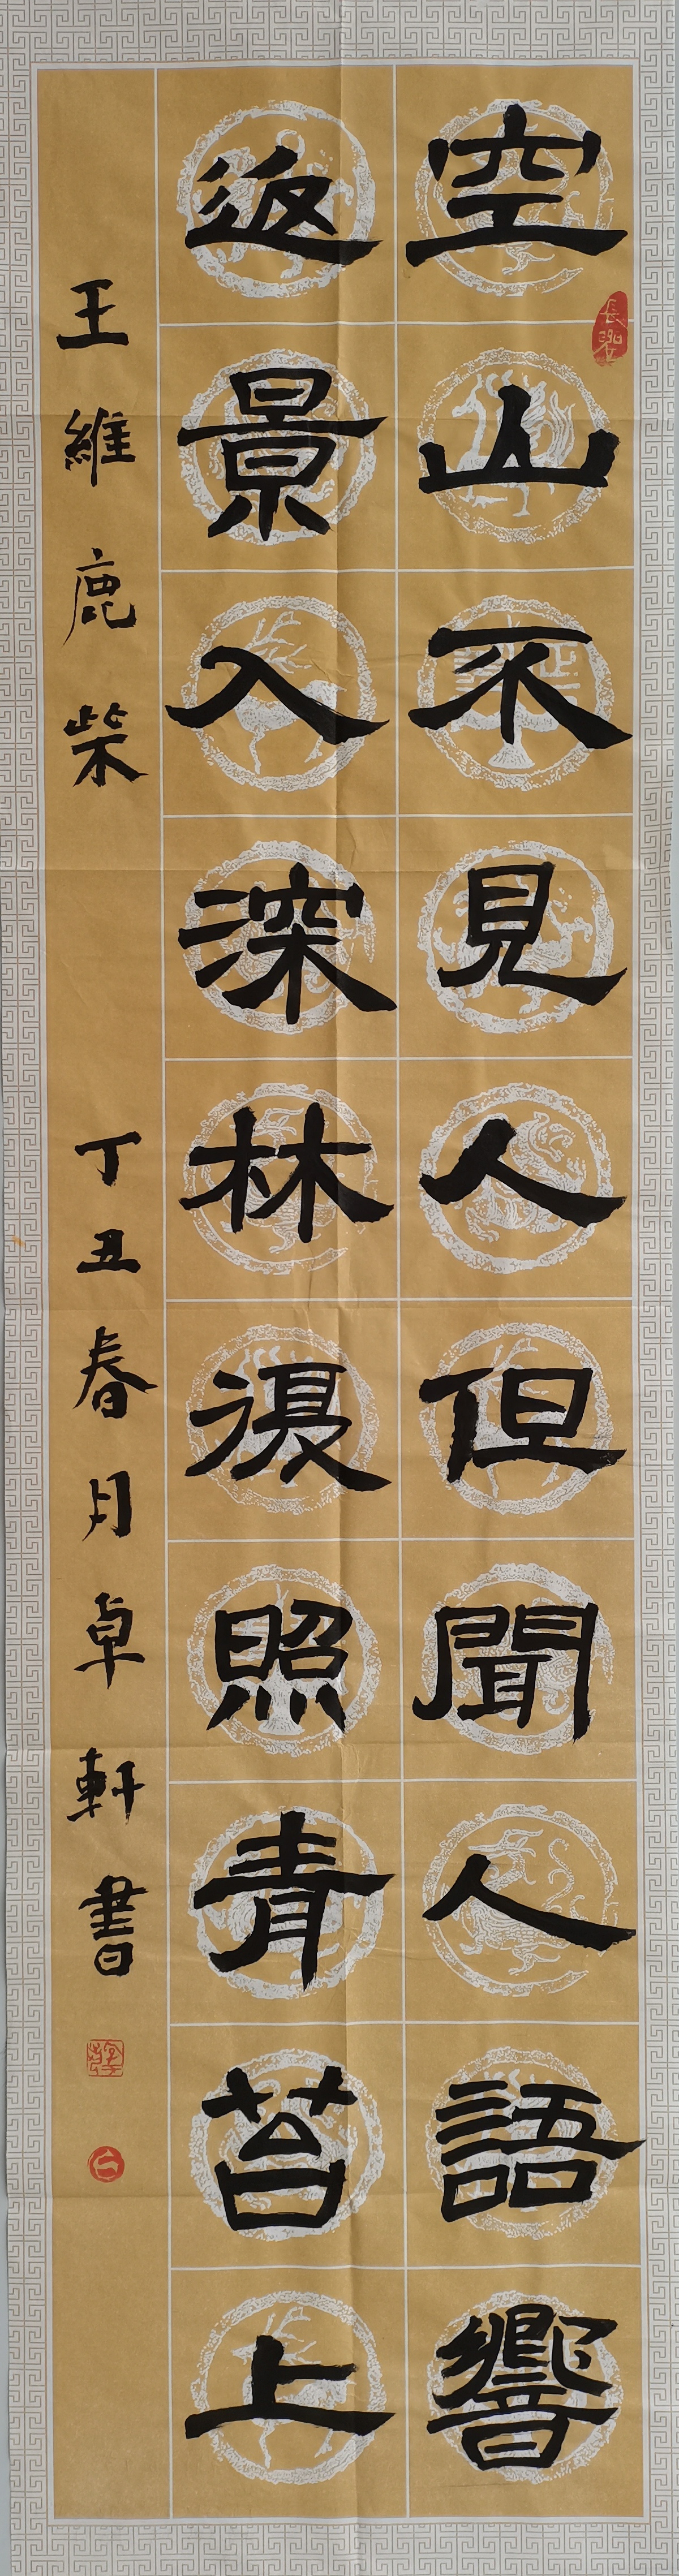 空山不見人但聞人語響
返景入深林復照青苔上
王維鹿柴 丁丑春月卓軒書